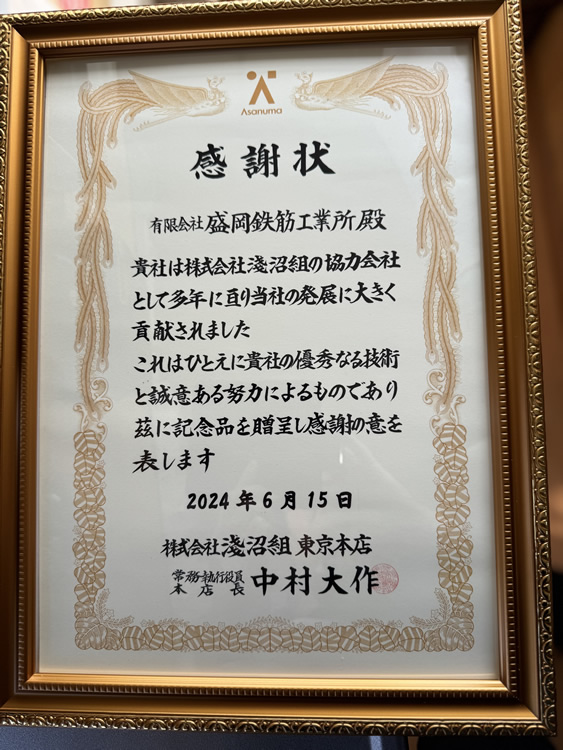 Asanuma
感謝状
有限会社 盛岡鉄筋工業所 殿
貴社は株式会社淺沼組の協力会社
として多年に亘り当社の発展に大きく
貢献されました
これはひとえに貴社の優秀なる技術
と誠意ある努力によるものであり
茲に記念品を贈呈し感謝の意を
表します
2024年6月15日
株式会社 淺沼組 東京本店
常務執行役員
本店長 中村大作